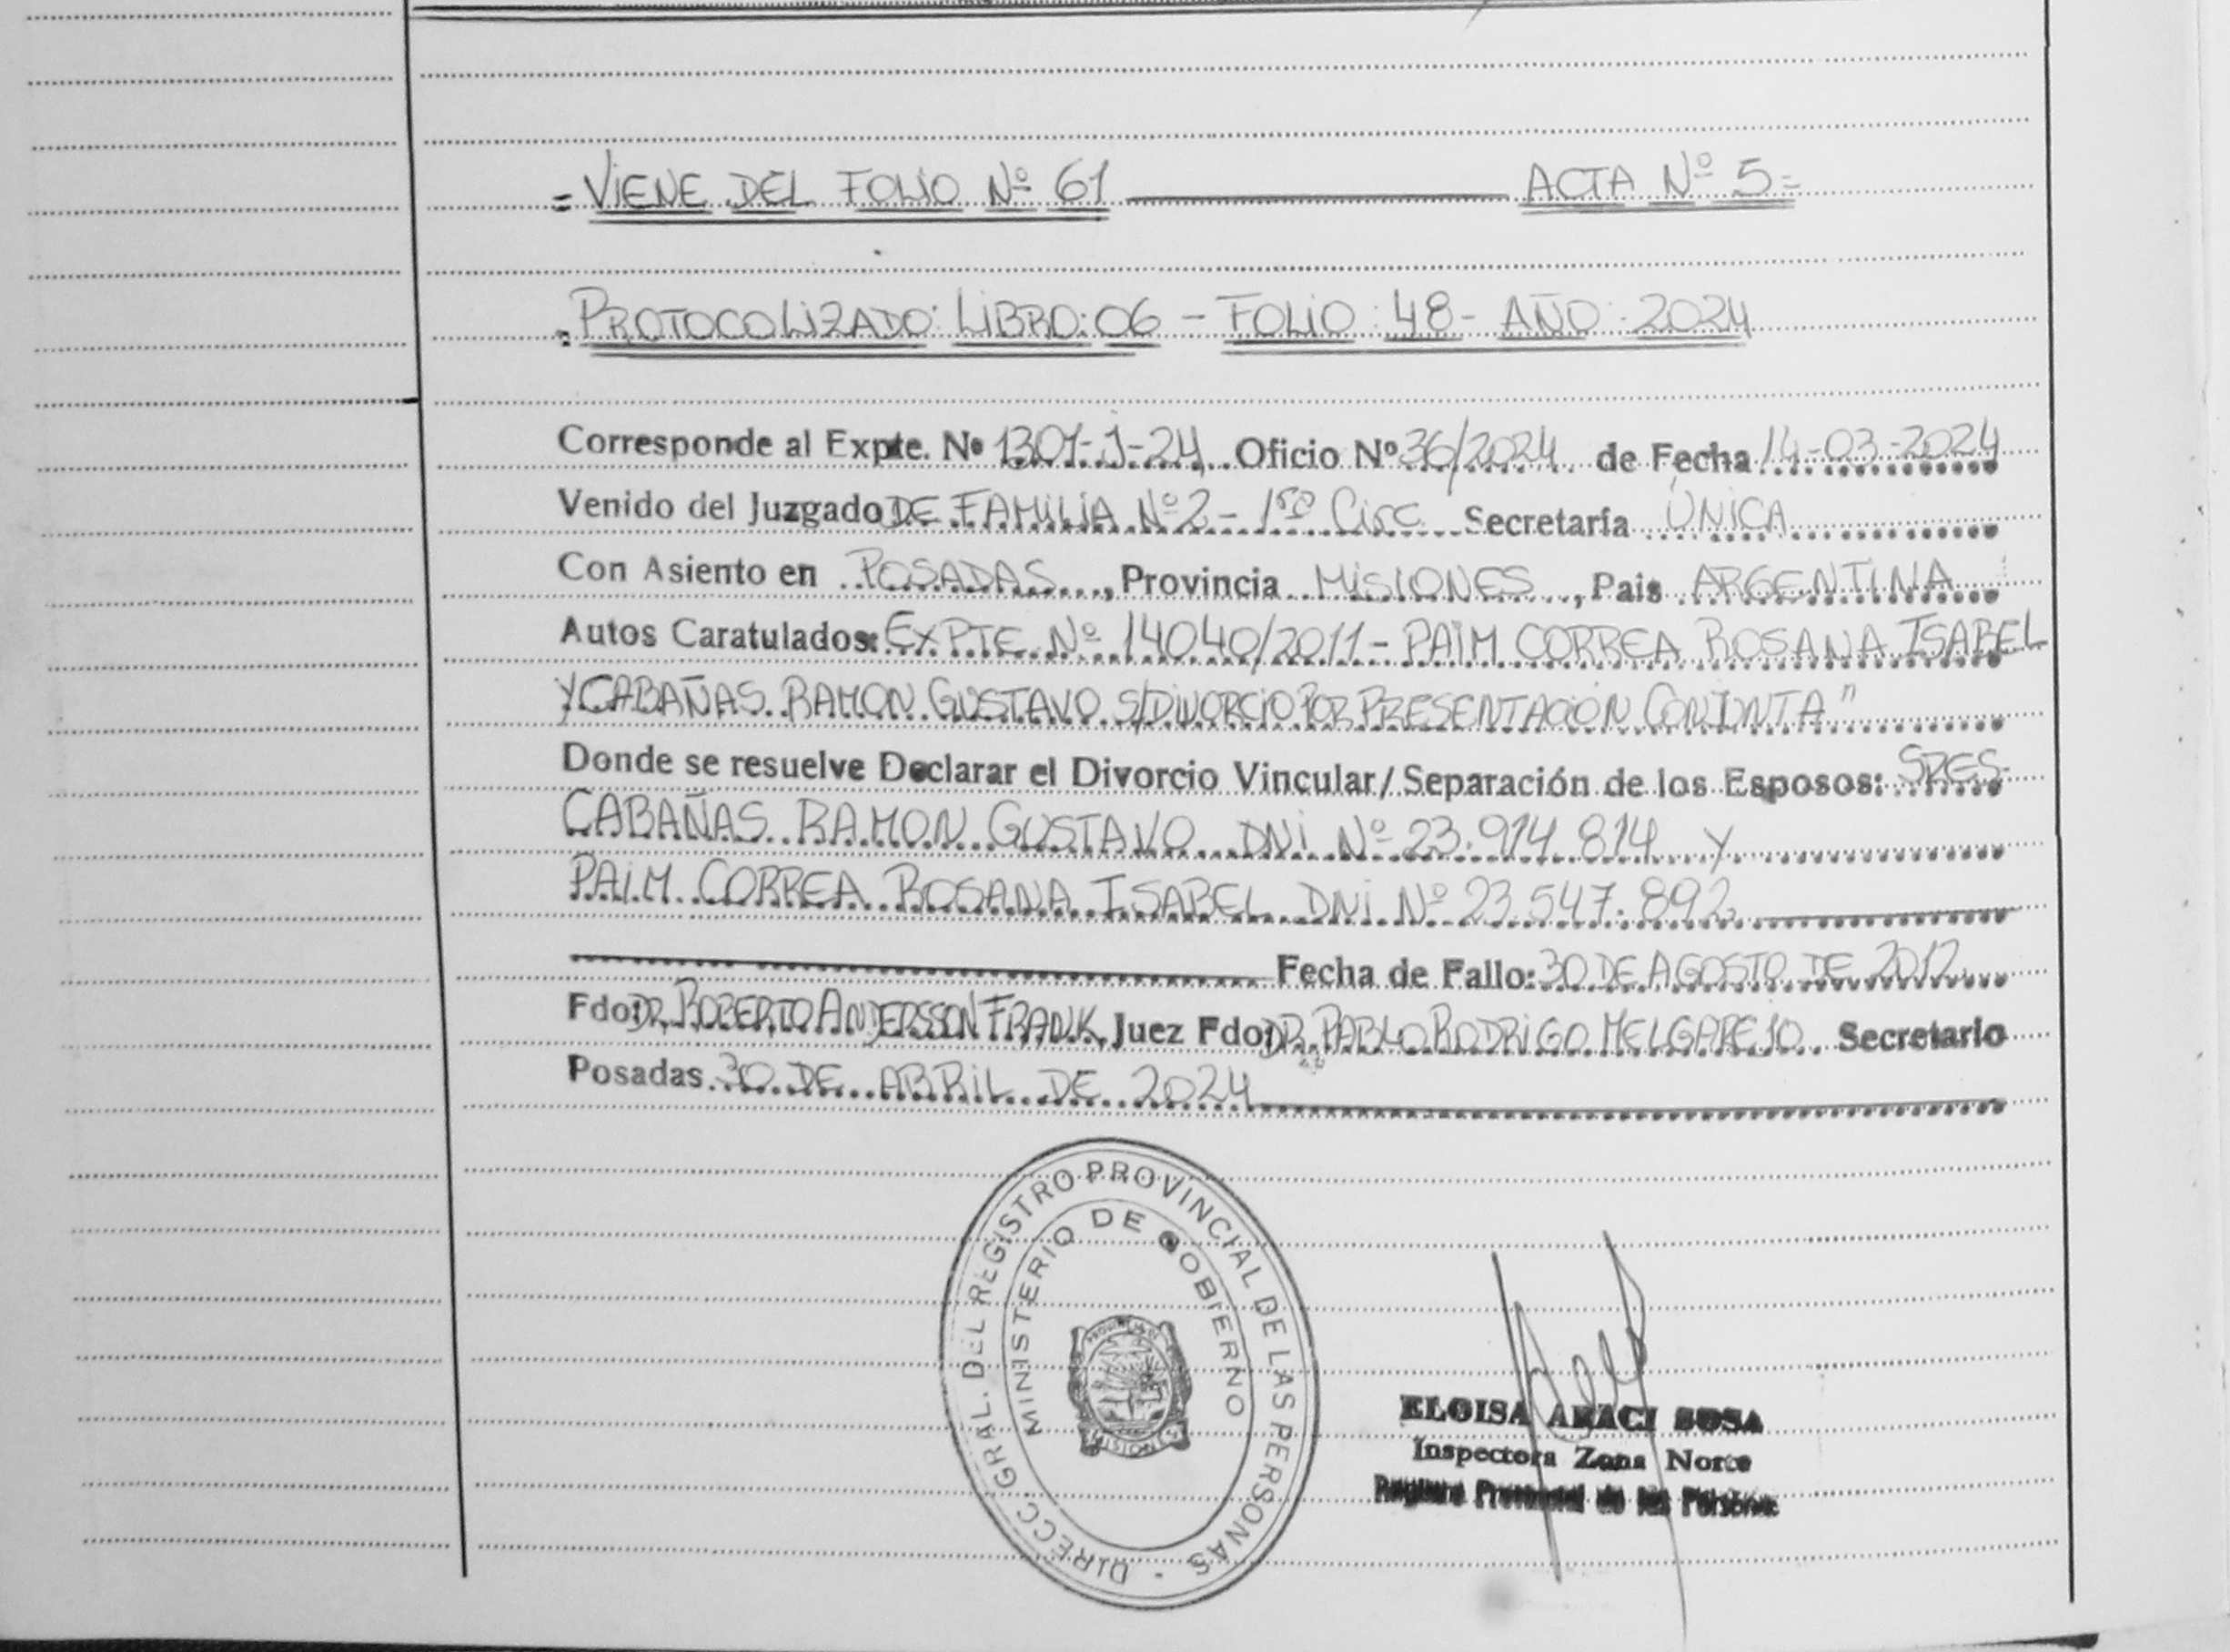 = VIENE DEL FOLIO Nº 61 ACTA Nº 5 =
PROTOCOLIZADO: LIBRO: 06 - FOLIO: 48 - AÑO: 2024
Corresponde al Expte. Nº 1301-J-24 Oficio Nº 36/2024 de Fecha 14-03-2024
Venido del Juzgado DE FAMILIA Nº 2 - 1ra Circ. Secretaría ÚNICA
Con Asiento en POSADAS, Provincia MISIONES, Pais ARGENTINA
Autos Caratulados: EXPTE Nº 14040/2011 - PAIM CORREA ROSANA ISABEL
Y CABAÑAS RAMON GUSTAVO S/DIVORCIO POR PRESENTACIÓN CONJUNTA"
Donde se resuelve Declarar el Divorcio Vincular/Separación de los Esposos: SRES
CABAÑAS RAMON GUSTAVO DNI Nº 23.914.814 Y
PAIM CORREA ROSANA ISABEL DNI Nº 23.547.892
Fecha de Fallo: 30 DE AGOSTO DE 2012
Fdo: DR. ROBERTO ANDERSSON FRANK, Juez Fdo: DR. PABLO RODRIGO MELGAREJO. Secretario
Posadas 30 DE ABRIL DE 2024
DIRECC. GRAL. DEL REGISTRO PROVINCIAL DE LAS PERSONAS
MINISTERIO DE GOBIERNO
MISIONES
ELOISA ARACI SOSA
Inspectora Zona Norte
Registro Provincial de las Personas